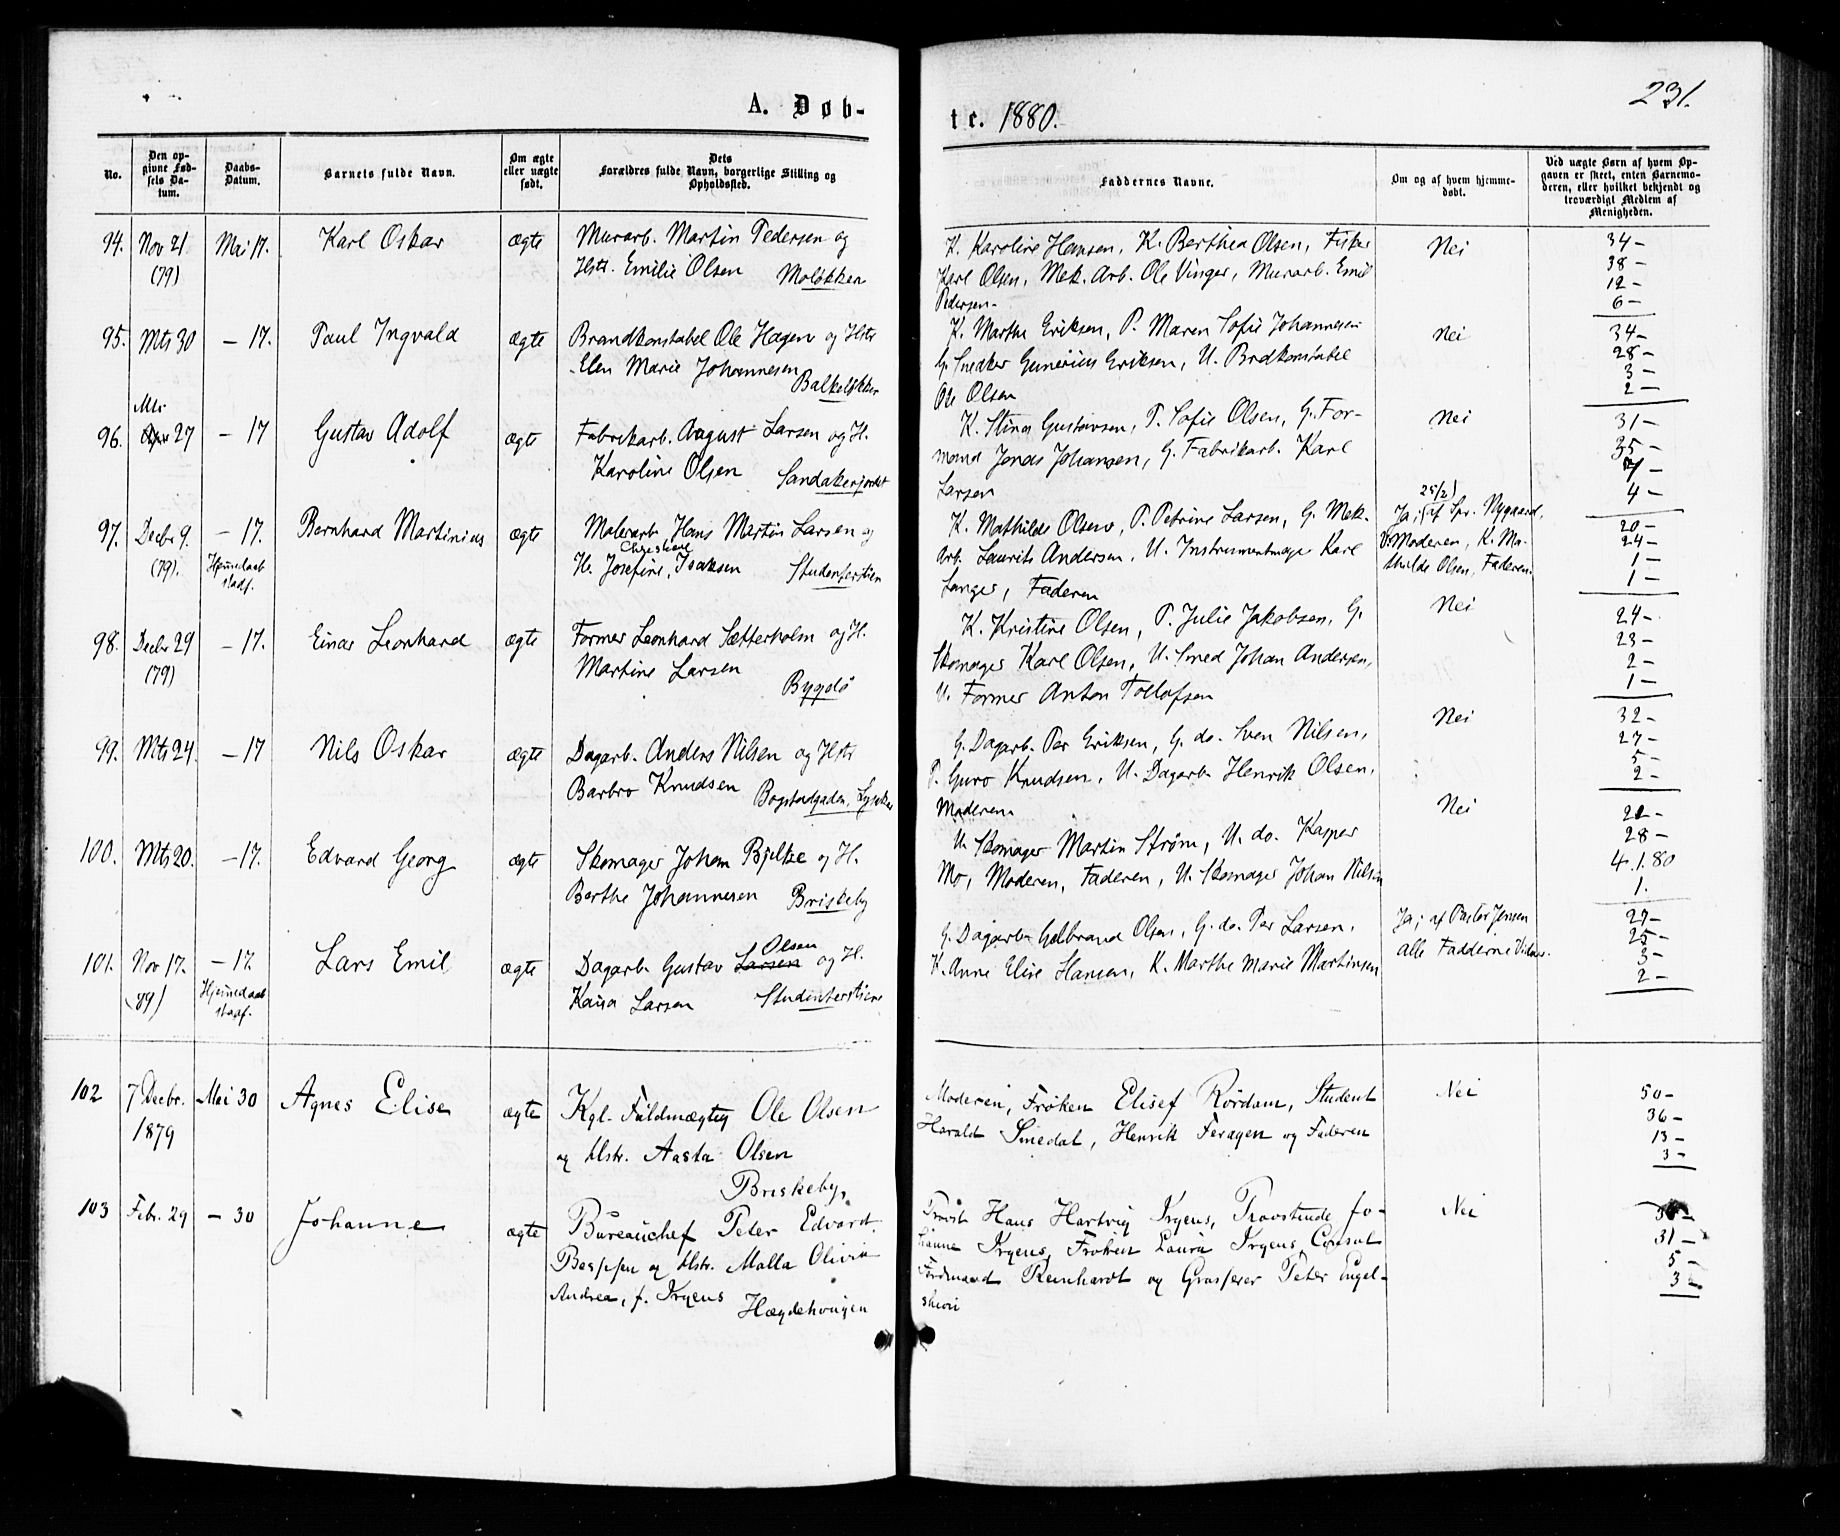 231.
A. Døb-
te. 1880.
No.
Den op-
givne Fød-
sels Da-
tum.
Daabs-
Datum.
Barnets fulde Navn.
Om ægte
eller uægte
født.
Dets
Forældres fulde Navn, borgerlige Stilling og
Opholdssted.
Faddernes Navne.
Om og af hvem hjemme-
døbt.
Ved uægte Børn af hvem Op-
gaven er skeet, enten Barnemo-
deren, eller hvilket bekjendt og
troværdigt Medlem af
Menigheden.
94. Nov 21 Mai 17. Karl Oskar ægte Murarb. Martin Pedersen og
(79) Hstr. Emilie Olsen Moløkken
K. Karoline Hansen, K. Berthea Olsen, Fisker
Karl Olsen, Mek. Arb. Ole Vinger, Murarb. Emil
Pedersen.
Nei
34-
38-
12-
6-
95. Mts 30 - 17. Paul Ingvald ægte Brandkonstabel Ole Hagen og Hstr
Elen Marie Johannesen
Balkeløkken
K. Marthe Eriksen, P. Maren Sofie Johannesen
G. Snedker Gunerius Eriksen, U. Brdkonstabel
Ole Olsen
Nei
34-
28-
3-
2-
Mts
96. 27 - 17 Gustav Adolf ægte Fabrikarb. August Larsen og H.
Karoline Olsen Sandakerjordet
K. Stina Gustavsen, P. Sofie Olsen, G. For-
mand Jonas Johansen, G. Fabrikarb. Karl
Larsen
Nei
31-
35-
7-
4-
97. Decbr 9. - 17. Bernhard Martinius ægte Malerarb Hans Martin Larsen og
(79). Hjemmedaab
stadf.
H. Josefine Isaksen Studenterstien
K. Mathilde Olsen, P. Petrine Larsen, G. Mek.
Arb. Laurits Andersen, U. Instrumentmager Karl
Langer, Faderen
25/2)
Ja, af Spr. Nygaard,
V: Moderen, K. Ma-
thilde Olsen, Faderen.
20-
24-
1-
1-
98. Decbr 29 - 17. Einar Leonhard ægte Former Leonhard Sætterholm og H.
(79) Martine Larsen
Bygdø
K. Kristine Olsen, P. Julie Jakobsen, G.
Skomager Karl Olsen, U. Smed Johan Andersen,
U. Former Anton Tollofsen
Nei
24-
23-
2-
1-
99. Mts 24. - 17 Nils Oskar ægte Dagarb. Anders Nilsen og Hstr
Barbro Knudsen Bogstadgaden,
G. Dagarb. Per Eriksen, G. do. Sven Nilsen,
P. Guro Knudsen, U. Dagarb. Henrik Olsen,
Moderen.
Nei
32-
27-
5-
2-
100. Mts 20. - 17. Edvard Georg ægte Skomager Johan Bjeltze og H.
Berthe Johannesen Briskeby
U. Skomager Martin Strøm, U. do. Kasper
Mo, Moderen, Faderen, U. Skomager Johan Nilsen
Nei
28-
4.1.80
1.
101. Nov 17. - 17. Lars Emil ægte Dagarb. Gustav Larsen Olsen og H.
Hjemmedaab
stadf.
Kaisa Larsen Studenterstien
G. Dagarb. Gulbrand Olsen, G. do. Per Larsen,
K. Anne Elise Hansen, K. Marthe Marie Martinsen
Ja; af Pastor Jensen
alle Fadderne Vidner.
27-
25-
3-
2-
102 7 Decbr. Mai 30 Agnes Elise ægte Kgl. Fuldmægtig Ole Olsen
1879 og Hstr. Aasta Olsen
Briskeby.
Moderen, Frøken Elisef Rördam, Student
Harald Smedal, Henrik Feragen og Faderen
Nei
50-
36-
13-
3-
103 Febr. 29 - 30 Johanne ægte Bureauchef Peter Edvard
og Hstr. Malla Olivia
Andrea, f. Irgens Hægdehougen
Provst Hans Hartvig Irgens, Provstinde Jo-
hanne Irgens, Frøken Laura Irgens, Consul
Ferdinand Reinhardt og Grosserer Peter Engel-
Nei
31-
5-
3-